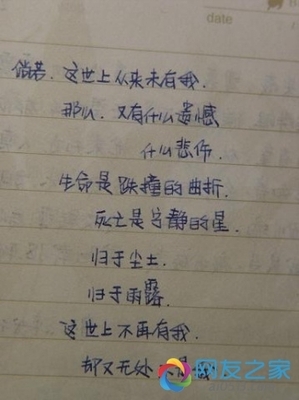 date
倘若.这世上从来未有我.
那么.又有什么遗憾
什么悲伤.
生命是跌撞的曲折.
死亡是宁静的星.
归于尘土.
归于雨露.
这世上不再有我.
却又无处
网友之家